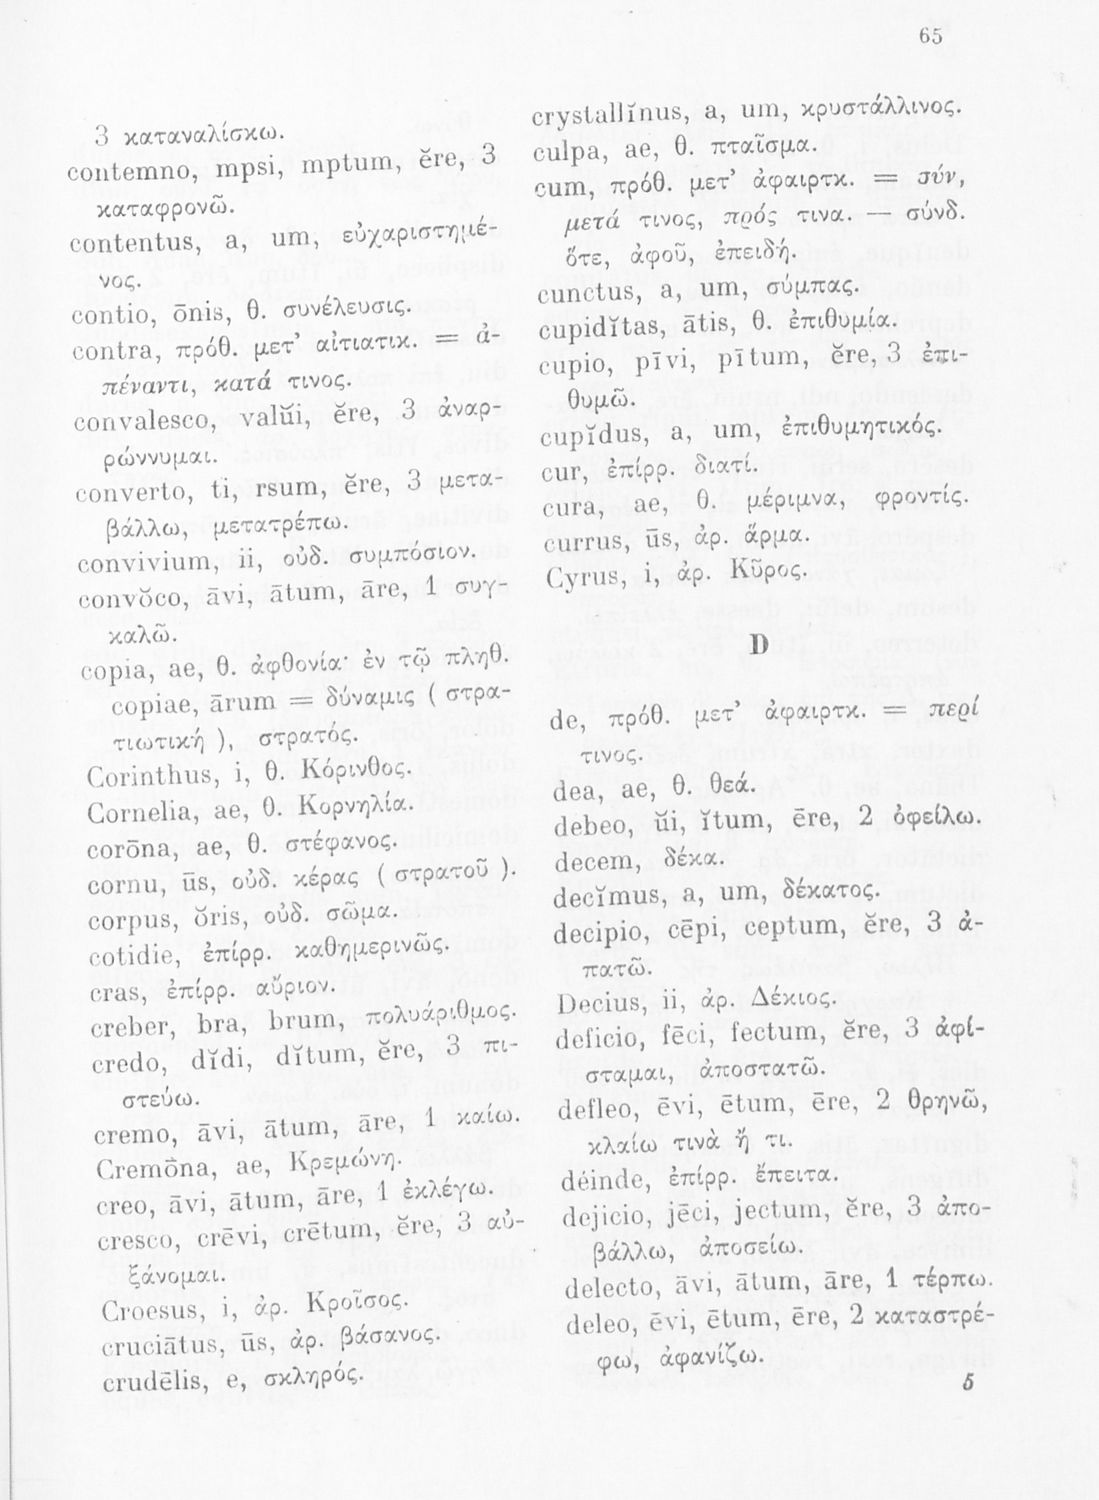 65
3 καταναλίσκω.
contemno, mpsi, mptum, ĕre, 3
καταφρονῶ.
contentus, a, um, εὐχαριστημέ-
νος.
contio, ōnis, θ. συνέλευσις.
contra, πρόθ. μετ’ αἰτιατικ. = ἀ-
πέναντι, κατά τινος.
convalesco, valŭi, ĕre, 3 ἀναρ-
ρώννυμαι.
converto, ti, rsum, ĕre, 3 μετα-
βάλλω, μετατρέπω.
convivium, ii, οὐδ. συμπόσιον.
convŏco, āvi, ātum, āre, 1 συγ-
καλῶ.
copia, ae, θ. ἀφθονία· ἐν τῷ πληθ.
copiae, ārum = δύναμις ( στρα-
τιωτική ), στρατός.
Corinthus, i, θ. Κόρινθος.
Cornelia, ae, θ. Κορνηλία.
corōna, ae, θ. στέφανος.
cornu, ūs, οὐδ. κέρας ( στρατοῦ ).
corpus, ŏris, οὐδ. σῶμα.
cotidie, ἐπίρρ. καθημερινῶς.
cras, ἐπίρρ. αὔριον.
creber, bra, brum, πολυάριθμος.
credo, dĭdi, dĭtum, ĕre, 3 πι-
στεύω.
cremo, āvi, ātum, āre, 1 καίω.
Cremōna, ae, Κρεμώνη.
creo, āvi, ātum, āre, 1 ἐκλέγω.
cresco, crēvi, crētum, ĕre, 3 αὐ-
ξάνομαι.
Croesus, i, ἀρ. Κροῖσος.
cruciātus, ūs, ἀρ. βάσανος.
crudēlis, e, σκληρός.
crystallĭnus, a, um, κρυστάλλινος.
culpa, ae, θ. πταῖσμα.
cum, πρόθ. μετ’ ἀφαιρτκ. = σύν,
μετά τινος, πρός τινα. — σύνδ.
ὅτε, ἀφοῦ, ἐπειδή.
cunctus, a, um, σύμπας.
cupidĭtas, ātis, θ. ἐπιθυμία.
cupio, pīvi, pītum, ĕre, 3 ἐπι-
θυμῶ.
cupĭdus, a, um, ἐπιθυμητικός.
cur, ἐπίρρ. διατί.
cura, ae, θ. μέριμνα, φροντίς.
currus, ūs, ἀρ. ἅρμα.
Cyrus, i, ἀρ. Κῦρος.
D
de, πρόθ. μετ’ ἀφαιρτκ. = περί
τινος.
dea, ae, θ. θεά.
debeo, ŭi, ĭtum, ēre, 2 ὀφείλω.
decem, δέκα.
decĭmus, a, um, δέκατος.
decipio, cēpi, ceptum, ĕre, 3 ἀ-
πατῶ.
Decius, ii, ἀρ. Δέκιος.
deficio, fēci, fectum, ĕre, 3 ἀφί-
σταμαι, ἀποστατῶ.
defleo, ēvi, ētum, ēre, 2 θρηνῶ,
κλαίω τινὰ ἤ τι.
déinde, ἐπίρρ. ἔπειτα.
dejicio, jēci, jectum, ĕre, 3 ἀπο-
βάλλω, ἀποσείω.
delecto, āvi, ātum, āre, 1 τέρπω.
deleo, ēvi, ētum, ēre, 2 καταστρέ-
φω, ἀφανίζω.
5